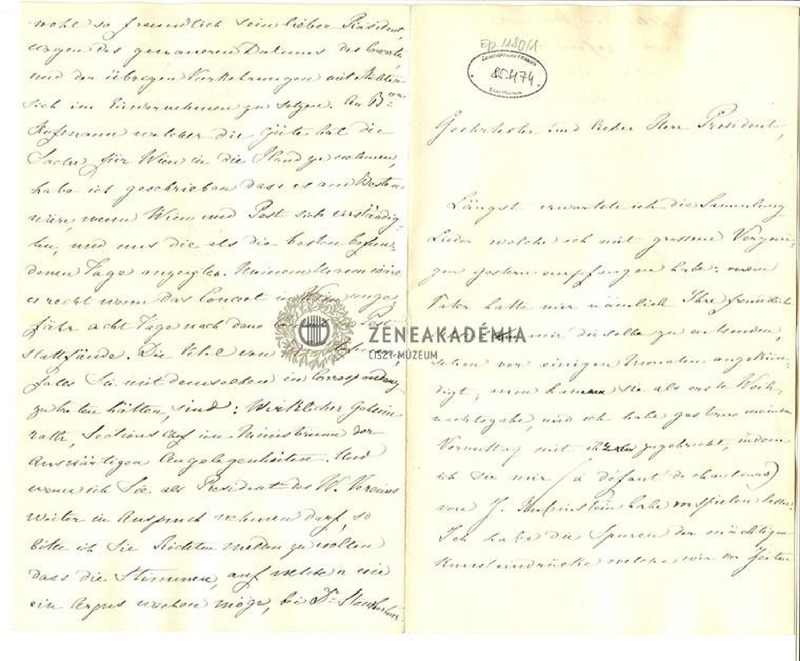 Ep. 1180/1
85.474.
Geehrtester und lieber Herr President,
Längst erwartete ich die Sammlung
Lieder welche ich mit grossem Vergnü-
gen gestern empfangen habe: mein
Vater hatte mir nämlich Ihre freundliche
mir dieselbe zu entsenden,
schon vor einigen Monaten angekün-
digt, nun kamen sie als erste Weih-
nachtsgabe, und ich habe gestern meinen
Vormittag mit zugebracht, indem
ich sie mir (à défaut de chanteurs)
von J. Rubinstein habe vorspielen lassen.
Ich habe die Spuren der mächtigen
Kunsteindrücke welche wir vor Zeiten
wohl so freundlich sein lieber Präsident,
wegen des genaueren Datums des Concerts
und der übrigen Vorkehrungen mit Richter
sich im Einvernehmen zu setzen. An Bon
Hofmann welcher die Güte hat die
Sache für Wien in die Hand zu nehmen,
habe ich geschrieben dass es am Besten
wäre, wenn Wien und Pest sich verständig-
ten, und uns die als die besten befun-
denen Tage anzeigten. Meinem Mann wäre
es recht wenn das Concert in Wien unge-
fähr acht Tage nach dem in
stattfände. Die Titel von
falls Sie mit demselben in Correspondenz
zu treten hätten, sind: Wirklicher Geheim-
rath, Sectionschef im Ministerium der
Auswärtigen Angelegenheiten. Und
wenn ich Sie als President des W. Vereins
weiter in Anspruch nehmen darf, so
bitte ich Sie Richter melden zu wollen
dass die Stimmen, auf welche er wie
ein Argus wachen möge, bei Dr
ZENEAKADÉMIA
LISZT MÚZEUM